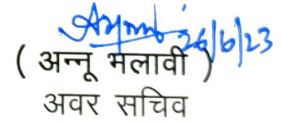 26/6/23
( अन्नू मलावी )
अवर सचिव